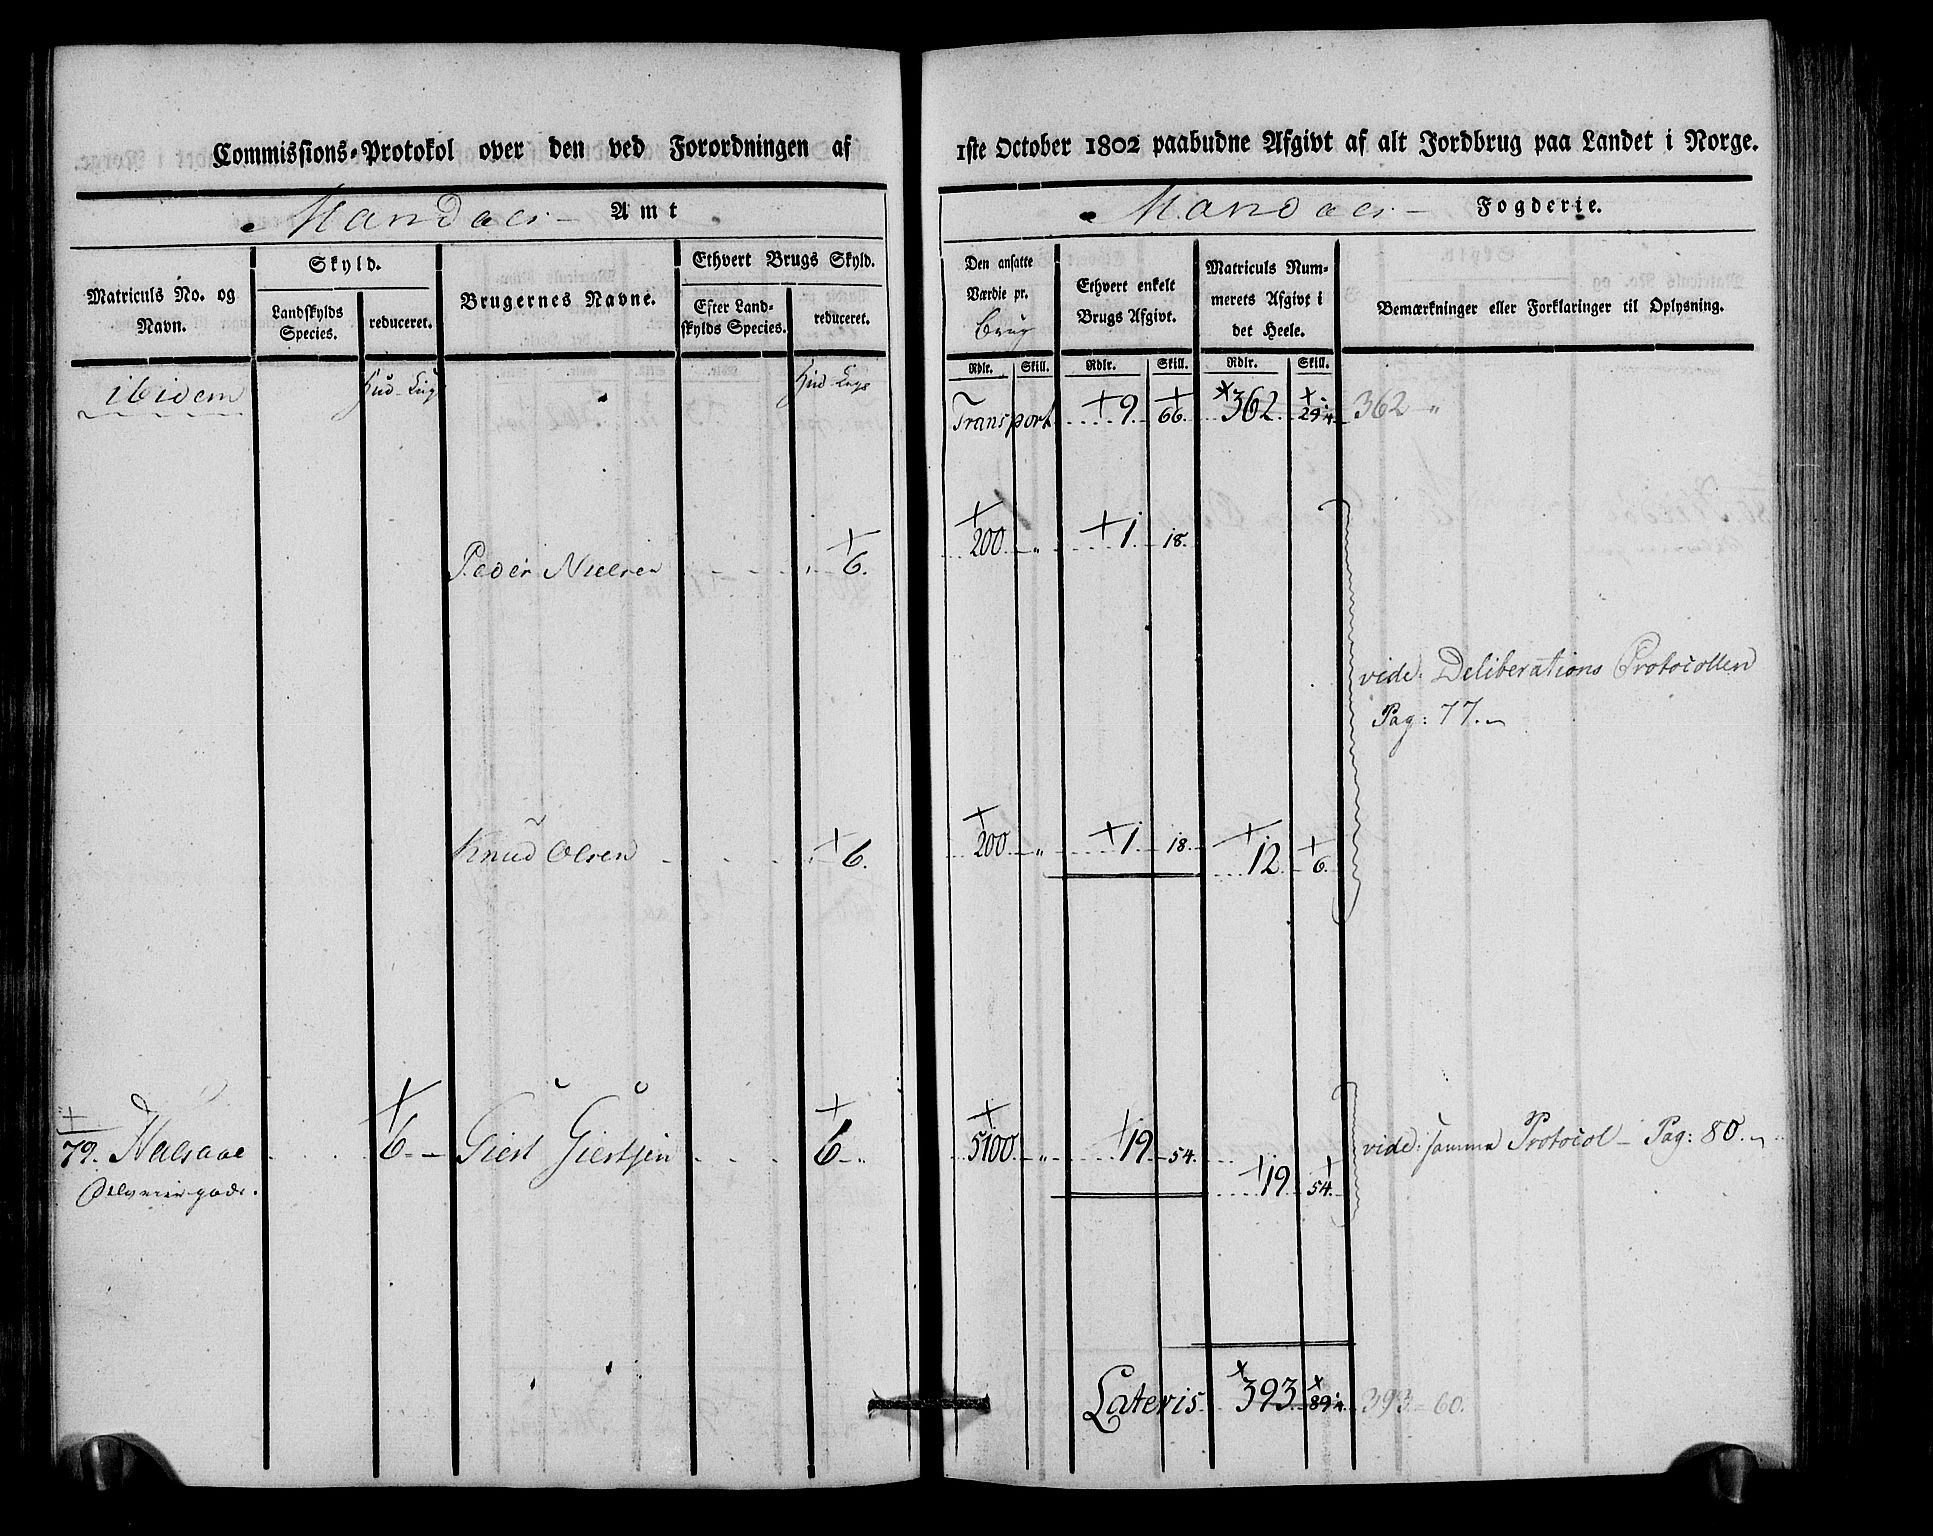 Commissions-Protokol over den ved Forordningen af
Mandals Amt
Matriculs No. og Navn.
Skyld.
Landskylds Species.
reduceret.
Brugernes Navne.
Ethvert Brugs Skyld.
Efter Landskylds Species.
reduceret.
ibidem
Hud
Hud
Peder Nielsen 6.
Knud Olsen 6.
79. Halsaae 6 Giert Giertsen 6
1ste October 1802 paabudne Afgivt af alt Jordbrug paa Landet i Norge.
Mandals Fogderie.
Den ansatte Værdie pr. Brug
Ethvert enkelt Brugs Afgivt.
Matriculs Nummerets Afgivt i det Heele.
Bemærkninger eller Forklaringer til Oplysning.
Rdlr. Skill. Rdlr. Skill. Rdlr. Skill.
Transport 9 66. 362. 29¼ 362 "
200 " 1 18.
vide: Deliberations Protocollen
Pag: 77.
200 " 1 18. 12 6.
5100 " 19 54. 19 54. vide: samme Protocol Pag: 80.
Lateris 393 89¼ 393 - 60.